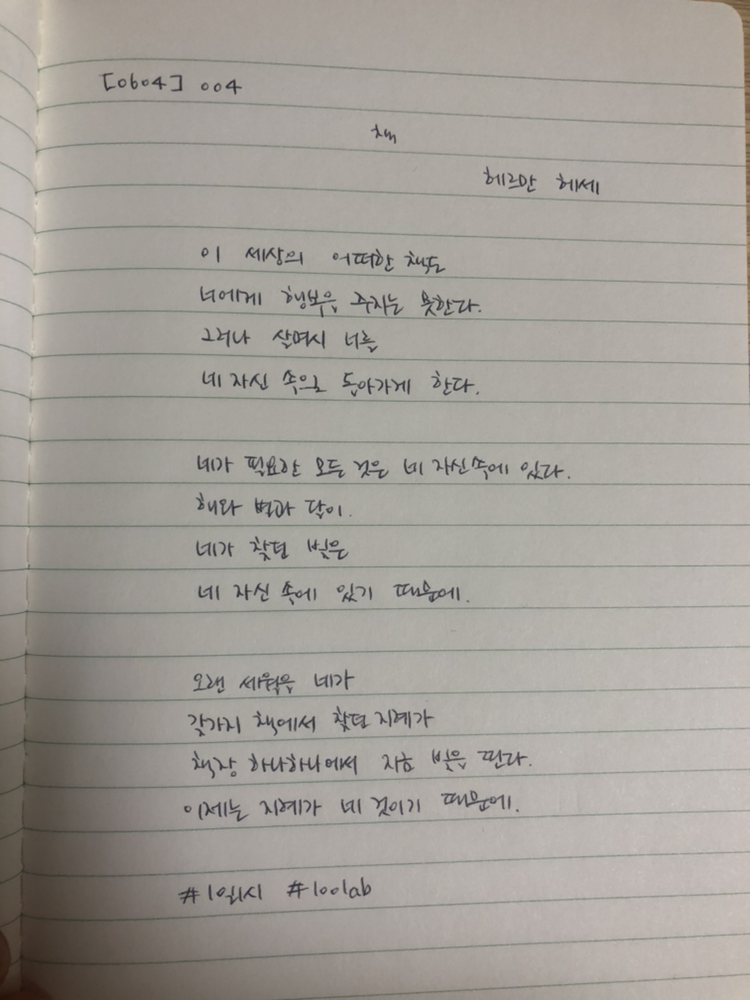 [0604] 004
책
헤르만 헤세
이 세상의 어떠한 책도
너에게 행복을 주지는 못한다.
그러나 살며시 너를
네 자신 속으로 돌아가게 한다.
네가 필요한 모든 것은 네 자신 속에 있다.
해와 별과 달이.
네가 찾던 빛은
네 자신 속에 있기 때문에.
오랜 세월을 네가
갖가지 책에서 찾던 지혜가
책장 하나하나에서 지금 빛을 띤다.
이제는 지혜가 네 것이기 때문에.
#1일1시 #100lab